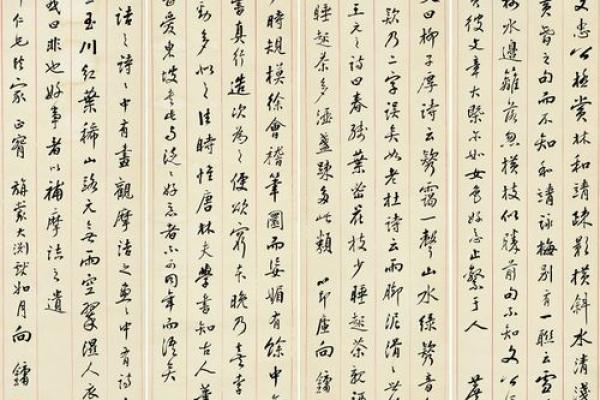 文忠公極賞林和靖疎影橫斜水清淺
黃昏之句而不知和靖詠梅別有一聯云雪
水邊籬落忽橫枝似勝前句不知文公何
彼文章大槩亦如女色好惡止繫于人
黃
又曰柳子厚詩云欸靄一聲山水綠欸音
欵乃二字誤矣如老杜詩云雨脚泥滑滑世
王元之詩曰春殘葉密花枝少睡起茶親酒
睡起茶多酒盞疎多此類 向鏞
時規模徐會稽筆圓而姿媚有餘中年
書真行造次為之便欲窮本晚乃喜李
勁多似之往時惟唐林夫學書知古人筆
者愛東坡此與泛泛好之者不可同年而語矣
詰之詩詩中有畫觀摩詰之畫畫中有詩
玉川紅葉稀山路元無雨空翠濕人衣
或曰非也好事者以補摩詰之遺
仁兄法家正 旃蒙大淵獻如月向鏞